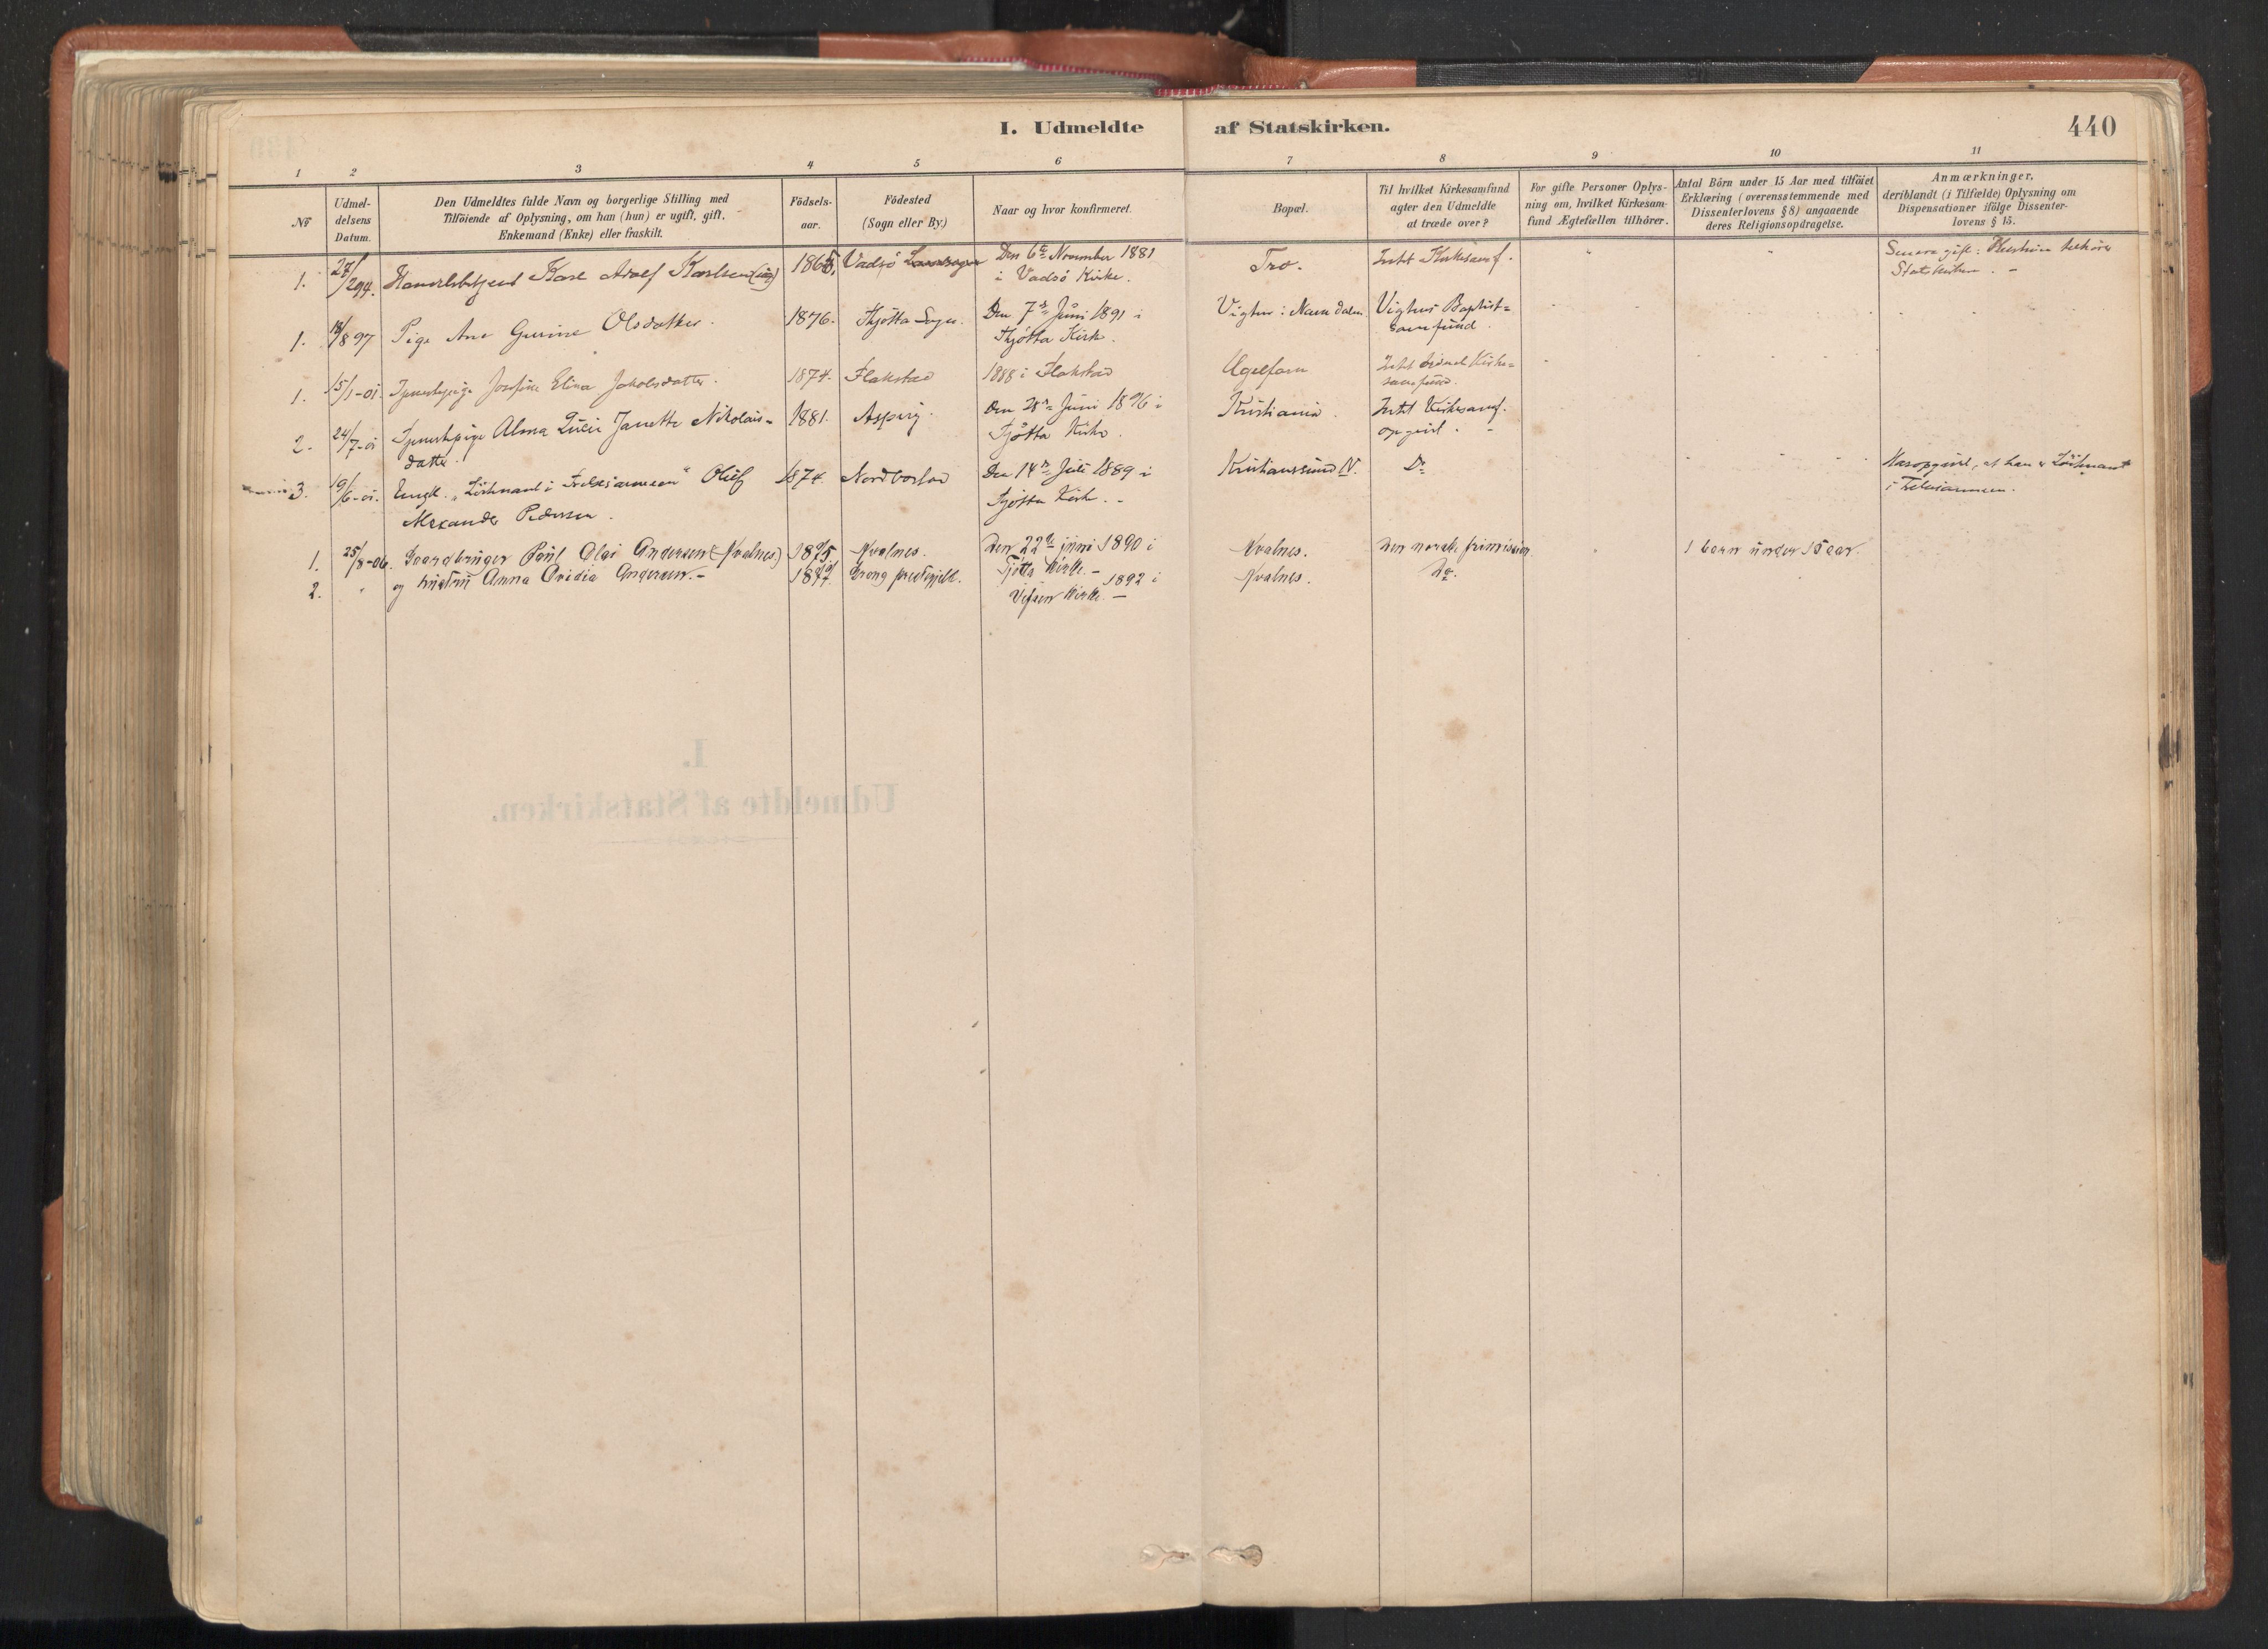 I. Udmeldte af Statskirken.
440
1 2 3 4 5 6 7 8 9 10 11
No
Udmel-
delsens
Datum.
Den Udmeldtes fulde Navn og borgerlige Stilling med
Tilföiende af Oplysning, om han (hun) er ugift, gift,
Enkemand (Enke) eller fraskilt.
Födsels-
aar.
Födested
(Sogn eller By.)
Naar og hvor konfirmeret.
Bopæl.
Til hvilket Kirkesamfund
agter den Udmeldte
at træde over?
For gifte Personer Oplys-
ning om, hvilket Kirkesam-
fund Ægtefællen tilhörer.
Antal Börn under 15 Aar med tilföiet
Erklæring (overensstemmende med
Dissenterlovens § 8) angaaende
deres Religionsopdragelse.
Anmærkninger,
deriblandt (i Tilfælde) Oplysning om
Dispensationer ifölge Dissenter-
lovens § 15.
1. 27/294. Handelsbetjent Karl Adolf Karlsen (ug) 1865, Vadsö Landsogn Den 6te November 1881 Tro. Intet Kirkesamf. Senere gift: Hustruen tilhörer
i Vadsö Kirke. Statskirken. -
1. 18/897 Pige Ane Gurine Olsdatter. 1876. Thjötta Sogn. Den 7de Juni 1891 i Vigten i Namdalen. Vigten Baptist-
Thjötta Kirke. samfund.
1. 15/1-01. Josefine Elina Jakobsdatter. 1874. Flakstad 1888 i Flakstad Intet bestemt Kirke-
samfund.
2. 24/7-01 Tjenestepige Alma Lucie Janette Nikolais- 1881. Den 28de Juni 1896 i Kristiania. Intet Kirkesamf.
datter. Tjötta Kirke. opgivet. -
3. 19/6-01. Ungk. "Löitnant i Frelsesarmeen" Oluf 1874. Nordvorland Den 14de Juli 1889 i Kristianssund N. Do Har opgivet, at han er Löitnant
Alexander Pedersen. Tjötta Kirke. - i Frelsesarmeen.
1. 25/8-06. Gaardbruger Paul Olai Andersen (Kvalnes) 1875 Kvalnes. Den 22de juni 1890 i Kvalnes. Den norske frimission 1 barn under 15 aar.
Tjötta Kirke. -
2. " og hustru Anna Ovidia Andersen. - 1877. Drevja prestegjeld. 1892 i Kvalnes. Do.
Vefsen Kirke. -
I.
Udmeldte af Statskirken.